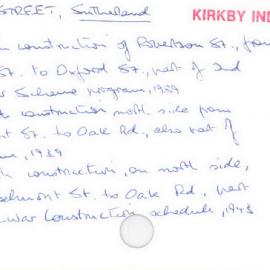 STREET, Sutherland
KIRKBY IND
construction of Robertson St., from
St. to Oxford St., part of 2nd
War Scheme program, 1939
construction north side from
St. to Oak Rd., also part of
1939
construction, on north side,
St. to Oak Rd., part
War Construction schedule, 1943